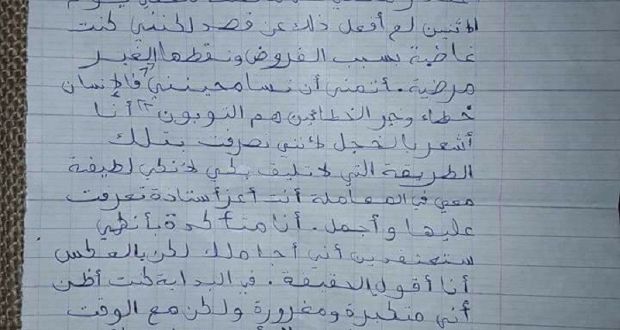 لإثنين لم أفعل ذلك عن قصد لكنني كنت
غاضبة بسبب الفروض ونقطها الغير
مرضية. أتمنى أن تسامحينني "فالإنسان
خطاء وخير الخطائين هم التوبون" أنا
أشعر بالخجل لأنني تصرفت بتلك
الطريقة التي لا تليق بكي لأنكي لطيفة
معي في المعاملة أنت أعز أستاذة تعرفت
عليها وأجمل. أنا متأكدة بأنكي
ستعتقدين أني أجاملك لكن بالعكس
أنا أقول الحقيقة. في البداية كنت أظن
أني متكبرة ومغرورة ولكن مع الوقت